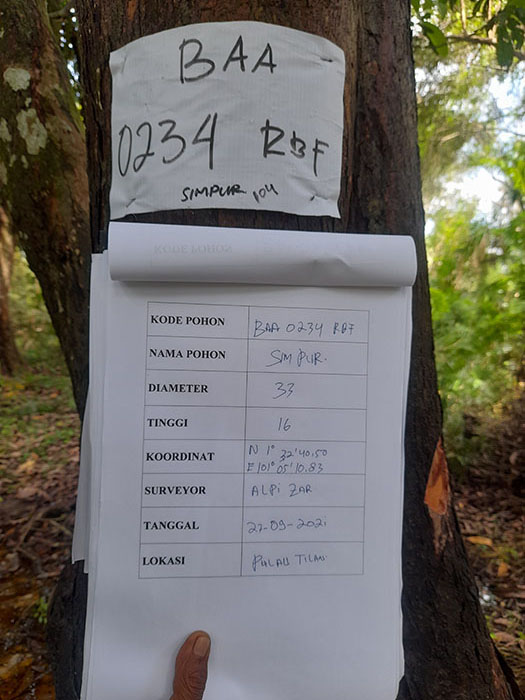 BAA
0234 RBF
SIMPUR 104
KODE POHON BAA 0234 RBF
NAMA POHON SIMPUR.
DIAMETER 33
TINGGI 16
KOORDINAT N 1° 32'40.50
E 101° 05'10.83
SURVEYOR ALPI ZAR
TANGGAL 27-09-2021
LOKASI PULAU TILAN